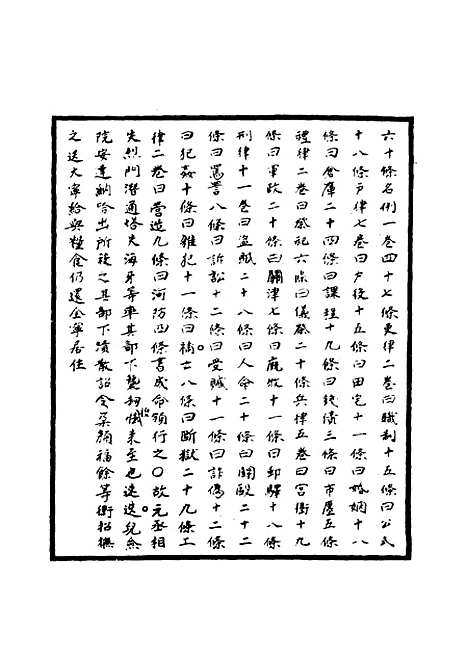 六十條名例一卷四十七條吏律二卷曰職制十五條曰公式
十八條戶律七卷曰戶役十五條曰田宅十一條曰婚姻十八
條曰倉庫二十四條曰課程十九條曰錢債三條曰市廛五條
禮律二卷曰祭祀六條曰儀禮二十條兵律五卷曰宮衛十九
條曰軍政二十條曰關津七條曰廐牧十一條曰郵驛十八條
刑律十一卷曰盜賊二十八條曰人命二十條曰鬭毆二十二
條曰罵詈八條曰訴訟十二條曰受贓十一條曰詐偽十二條
曰犯姦十條曰雜犯十一條曰捕亡八條曰斷獄二十九條工
律二卷曰營造九條曰河防四條書成命頒行之○故元丞相
失烈門潛通塔失海牙等率其部下襲刼捏怯來至也速迭兒給
院安達納哈出所殺之其部下潰散詔令朶顏福餘等衛招撫
之送大寧給與糧食仍還全寧居住